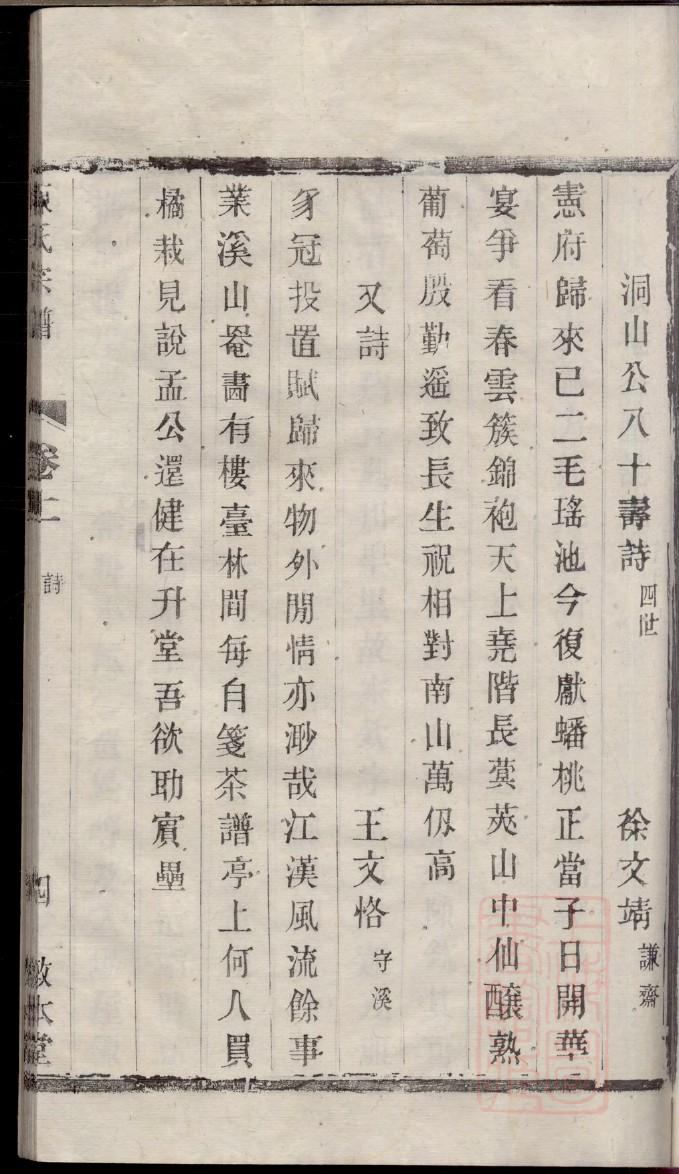 洞山公八十壽詩 四世 徐文靖 謙齋
憲府歸來已二毛瑤池今復獻蟠桃正當子日開華
宴爭看春雲簇錦袍天上堯階長蓂莢山中仙醸熟
葡萄殷勤遥致長生祝相對南山萬仭高
又詩 王文恪 守溪
豸冠投置賦歸來物外閒情亦渺哉江漢風流餘事
業溪山罨畵有樓臺林間每自箋茶譜亭上何人買
橘栽見說孟公還健在升堂吾欲助賓罍
陳氏宗譜 卷上 詩 四 敦本堂